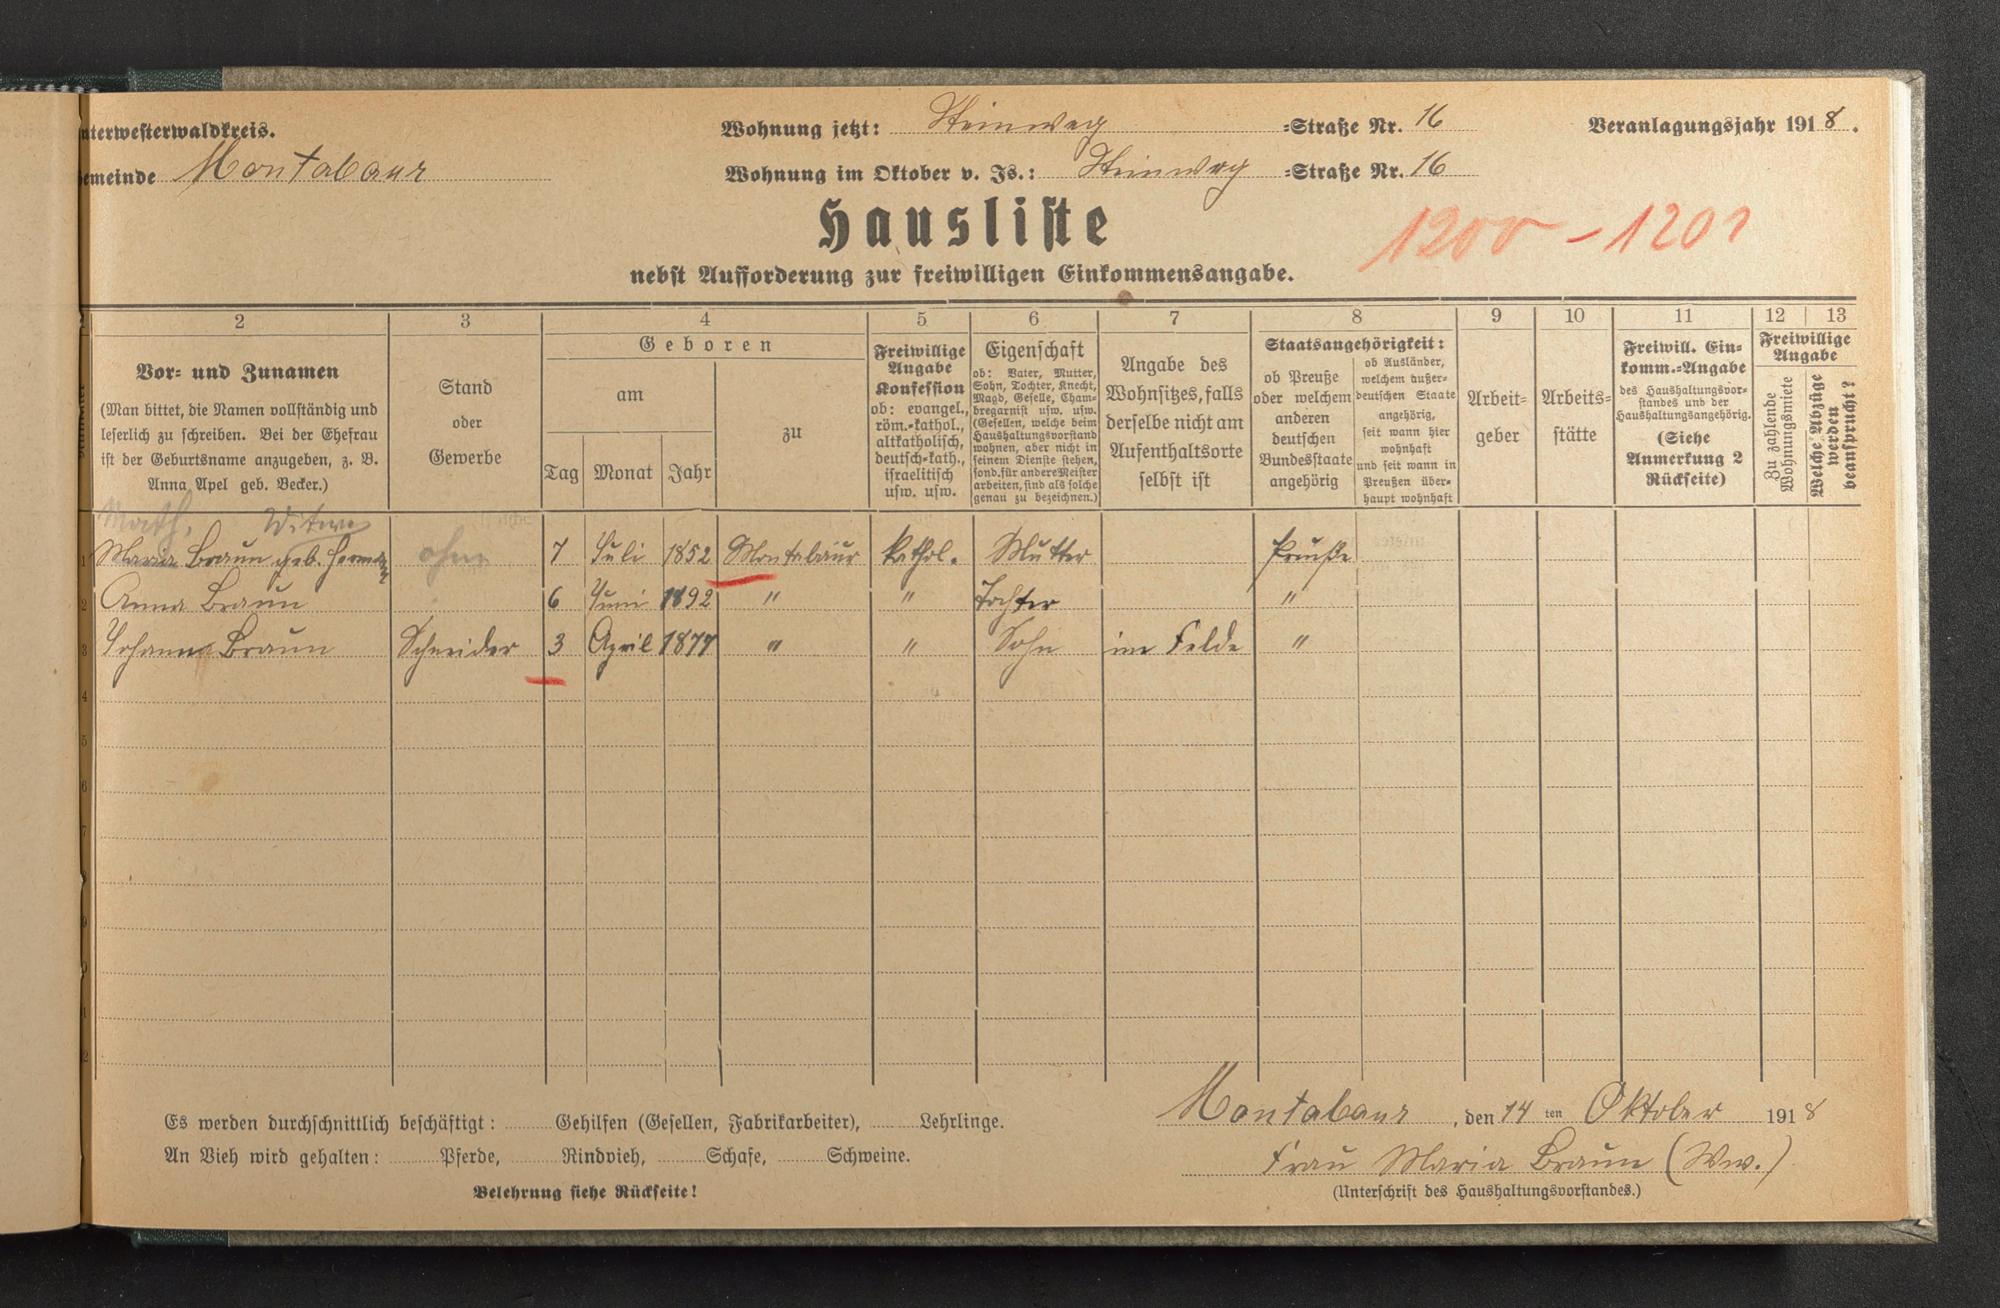 nterwesterwaldkreis.
Wohnung jetzt: Steinweg =Straße Nr. 16
Veranlagungsjahr 1918.
emeinde Montabaur
Wohnung im Oktober v. Js.: Steinweg =Straße Nr. 16
Hausliste
1200 - 1201
nebst Aufforderung zur freiwilligen Einkommensangabe.
2 3 4 5 6 7 8 9 10 11 12 13
Vor- und Zunamen
(Man bittet, die Namen vollständig und
leserlich zu schreiben. Bei der Ehefrau
ist der Geburtsname anzugeben, z. B.
Anna Apel geb. Becker.)
Stand
oder
Gewerbe
Geboren
am
Tag Monat Jahr
zu
Freiwillige
Angabe
Konfession
ob: evangel.,
röm.-kathol.,
altkatholisch,
deutsch-kath.,
israelitisch
usw. usw.
Eigenschaft
ob: Vater, Mutter,
Sohn, Tochter, Knecht,
Magd, Geselle, Cham-
bregarnist usw. usw.
(Gesellen, welche beim
Haushaltungsvorstand
wohnen, aber nicht in
seinem Dienste stehen,
sond. für andere Meister
arbeiten, sind als solche
genau zu bezeichnen.)
Angabe des
Wohnsitzes, falls
derselbe nicht am
Aufenthaltsorte
selbst ist
Staatsangehörigkeit:
ob Preuße
oder welchem
anderen
deutschen
Bundesstaate
angehörig
ob Ausländer,
welchem außer-
deutschen Staate
angehörig,
seit wann hier
wohnhaft
und seit wann in
Preußen über-
haupt wohnhaft
Arbeit-
geber
Arbeits-
stätte
Freiwill. Ein-
komm.-Angabe
des Haushaltungsvor-
standes und der
Haushaltungsangehörig.
(Siehe
Anmerkung 2
Rückseite)
Freiwillige
Angabe
Zu zahlende
Wohnungsmiete
Welche Abzüge
werden
beansprucht?
Math. Witwe
1 Maria Braun geb. Herman ohne 7 Juli 1852 Montabaur kathol. Mutter Preuße
2 Anna Braun 6 Juni 1892 " " Tochter "
3 Johann Braun Schneider 3 April 1877 " " Sohn im Felde "
4
5
6
7
8
9
0
1
2
Es werden durchschnittlich beschäftigt: Gehilfen (Gesellen, Fabrikarbeiter), Lehrlinge.
Montabaur, den 14 ten Oktober 1918
An Vieh wird gehalten: Pferde, Rindvieh, Schafe, Schweine.
Frau Maria Braun (Ww.)
Belehrung siehe Rückseite!
(Unterschrift des Haushaltungsvorstandes.)